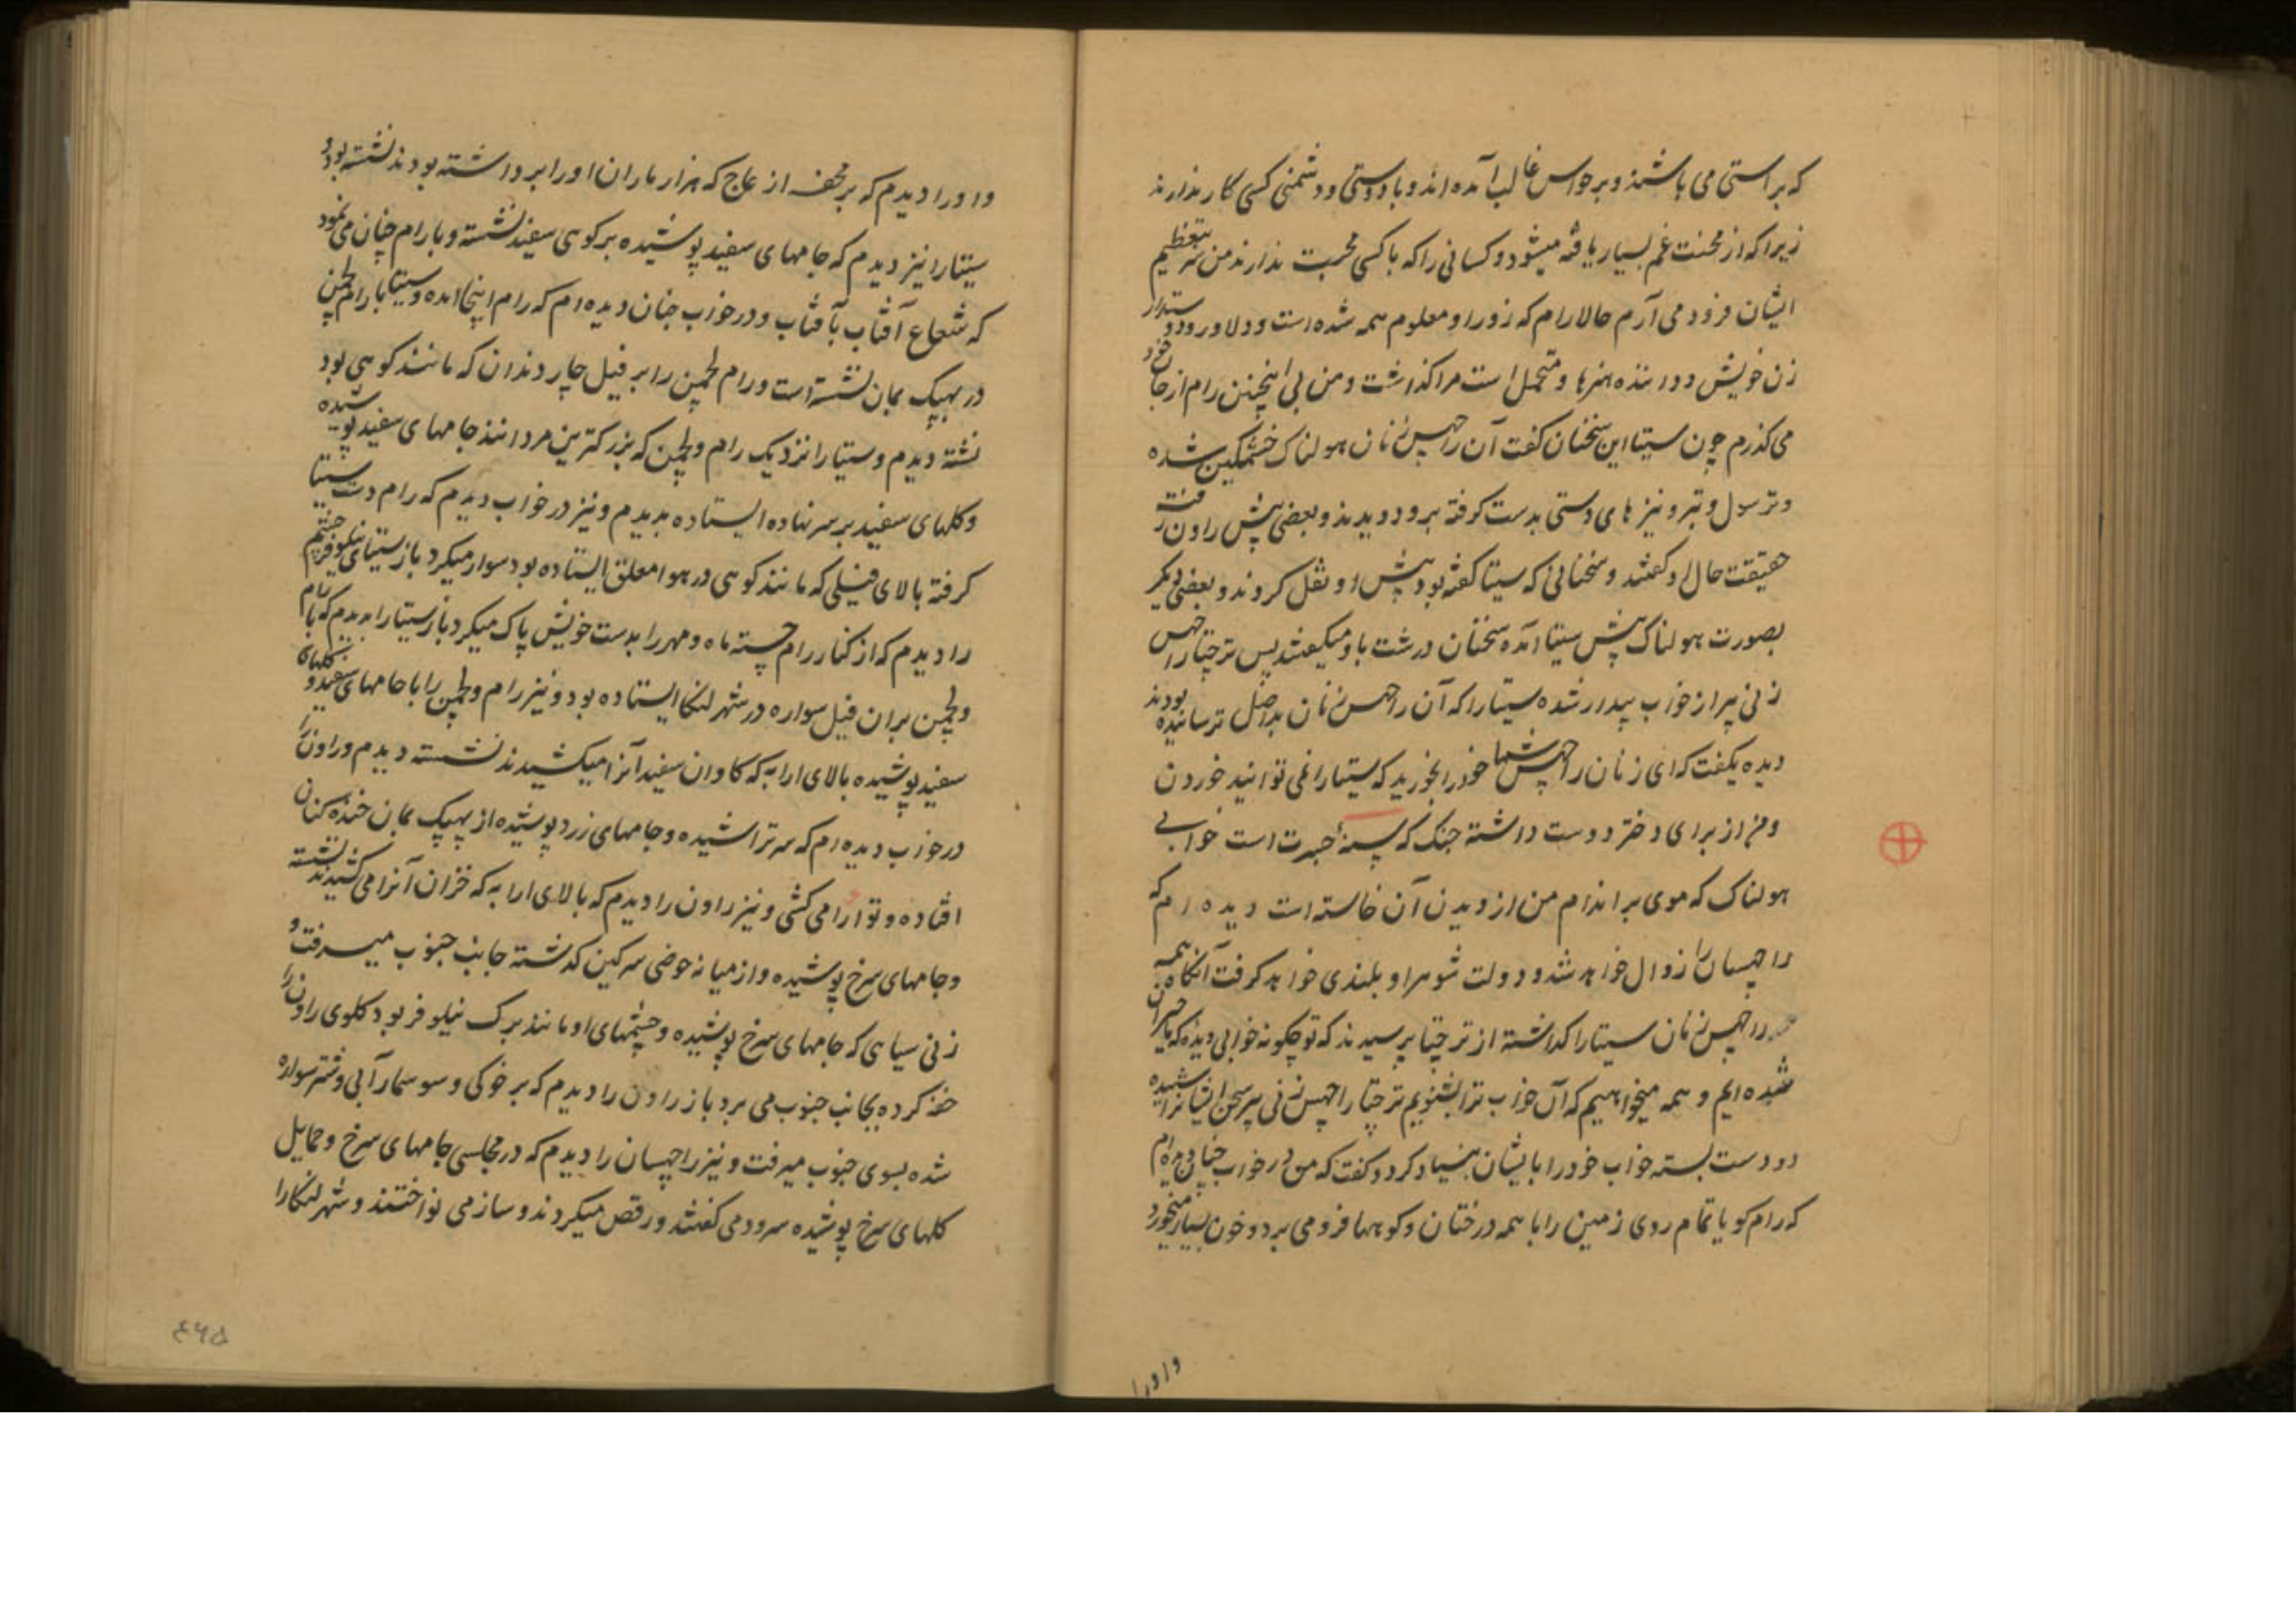 که براستی می باشند و بر حواس غالب آمده اند و با دوستی و دشمنی کسی کار ندارند
زیرا که از محنت غم بسیار یافته میشود و کسانی را که با کسی محبت ندارند من سر بتعظیم
ایشان فرود می آرم حالا رام که زور او معلوم همه شده است و دلاور و دوستدار
زن خویش و داننده هنرها و متحمل است مرا گذاشت و من بی اینچنین رام از جان خود
می گذرم چون سیتا این سخنان گفت آن راچهس زنان هولناک خشمگین شده
و ترسول و تبر و نیزهای دستی بدست گرفته برو دویدند و بعضی پیش راون رفته
حقیقت حال او گفتند و سخنانی که سیتا گفته بود پیش او نقل کردند و بعضی دیگر
بصورت هولناک پیش سیتا آمده سخنان درشت باو میگفتند پس ترجتا راچهس
زنی پیر از خواب بیدار شده سیتا را که آن راچهس زنان بداصل ترسانیده بودند
دیده بگفت که ای زنان راچهس شما خود را بخورید که سیتا را نمی توانید خوردن
و من از برای دختر دوست داشته جنک که پسنه جسرت است خوابی
هولناک که موی بر اندام من از دیدن آن خاسته است دیده ام که
راچهسان را زوال خواهد شد و دولت شوهر او بلندی خواهد گرفت آنگاه همه
راچهس زنان سیتا را گذاشته از ترجتا پرسیدند که تو چگونه خوابی دیده که ما حیران
شده ایم و همه میخواهیم که آن خواب ترا بشنویم ترجتا راچهس زنی پیر سخن ایشانرا شنیده
دو دست بسته خواب خود را بایشان بنیاد کرد و گفت که من در خواب چنان دیده ام
که رام گویا تمام روی زمین را با همه درختان و کوهها فرو می برد و خون بسیار میخورد
و او را
و او را دیدم که بر محفه از عاج که هزار ماران او را برداشته بودند نشسته بود و
سیتا را نیز دیدم که جامهای سفید پوشیده بر کوهی سفید نشسته و با رام چنان می نمود
که شعاع آفتاب بآفتاب و در خواب چنان دیده ام که رام اینجا آمده و سیتا با رام لچمن
در پهپک بمان نشسته است و رام لچمن را بر فیل چار دندان که مانند کوهی بود
نشسته دیدم و سیتا را نزدیک رام و لچمن که بزرگترین مردانند جامهای سفید پوشیده
و گلهای سفید بر سر نهاده ایستاده بدیدم و نیز در خواب دیدم که رام دست سیتا
گرفته بالای فیلی که مانند کوهی در هوا معلق ایستاده بود سوار میکرد باز سیتای نیلوفر چشم
را دیدم که از کنار رام جسته ماه و مهر را بدست خویش پاک میکرد باز سیتا را بدیدم که با رام
و لچمن بران فیل سواره در شهر لنکا ایستاده بود و نیز رام و لچمن را با جامهای سفید و گلهای
سفید پوشیده بالای ارابه که گاوان سفید آنرا میکشیدند نشسته دیدم و راون را
در خواب دیده ام که سر تراشیده و جامهای زرد پوشیده از پهپک بمان خنده کنان
افتاده و تو او را می کشی و نیز راون را دیدم که بالای ارابه که خران آنرا می کشیدند نشسته
و جامهای سرخ پوشیده و از میانه حوضی سرگین گذشته جانب جنوب میرفت و
زنی سیاهی که جامهای سرخ پوشیده و چشمهای او مانند برگ نیلوفر بود گلوی راون را
خفه کرده بجانب جنوب می برد باز راون را دیدم که بر خوکی و سوسمار آبی و شتر سواره
شده بسوی جنوب میرفت و نیز راچهسان را دیدم که در مجلسی جامهای سرخ و حمایل
گلهای سرخ پوشیده سرود می گفتند و رقص میکردند و ساز می نواختند و شهر لنکا را
۴۶۵